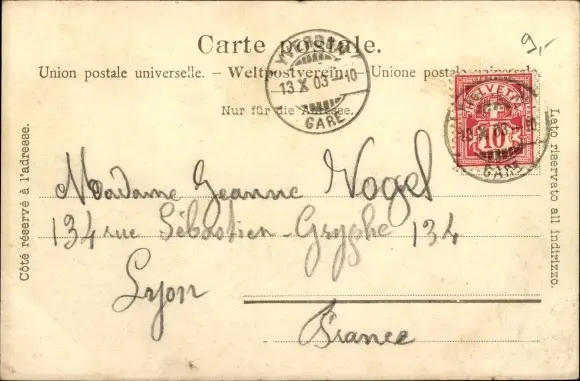 9,-
Carte postale.
Union postale universelle. – Weltpostverein. – Unione postale universale.
Nur für die Adresse.
YVERDON
13 X 03 – 10
GARE
HELVETIA
10
13 X 03 – 10
GARE
Côté réservé à l'adresse.
Lato riservato all indirizzo.
Madame Jeanne Vogel
134 rue Sébastien-Gryphe 134
Lyon
France